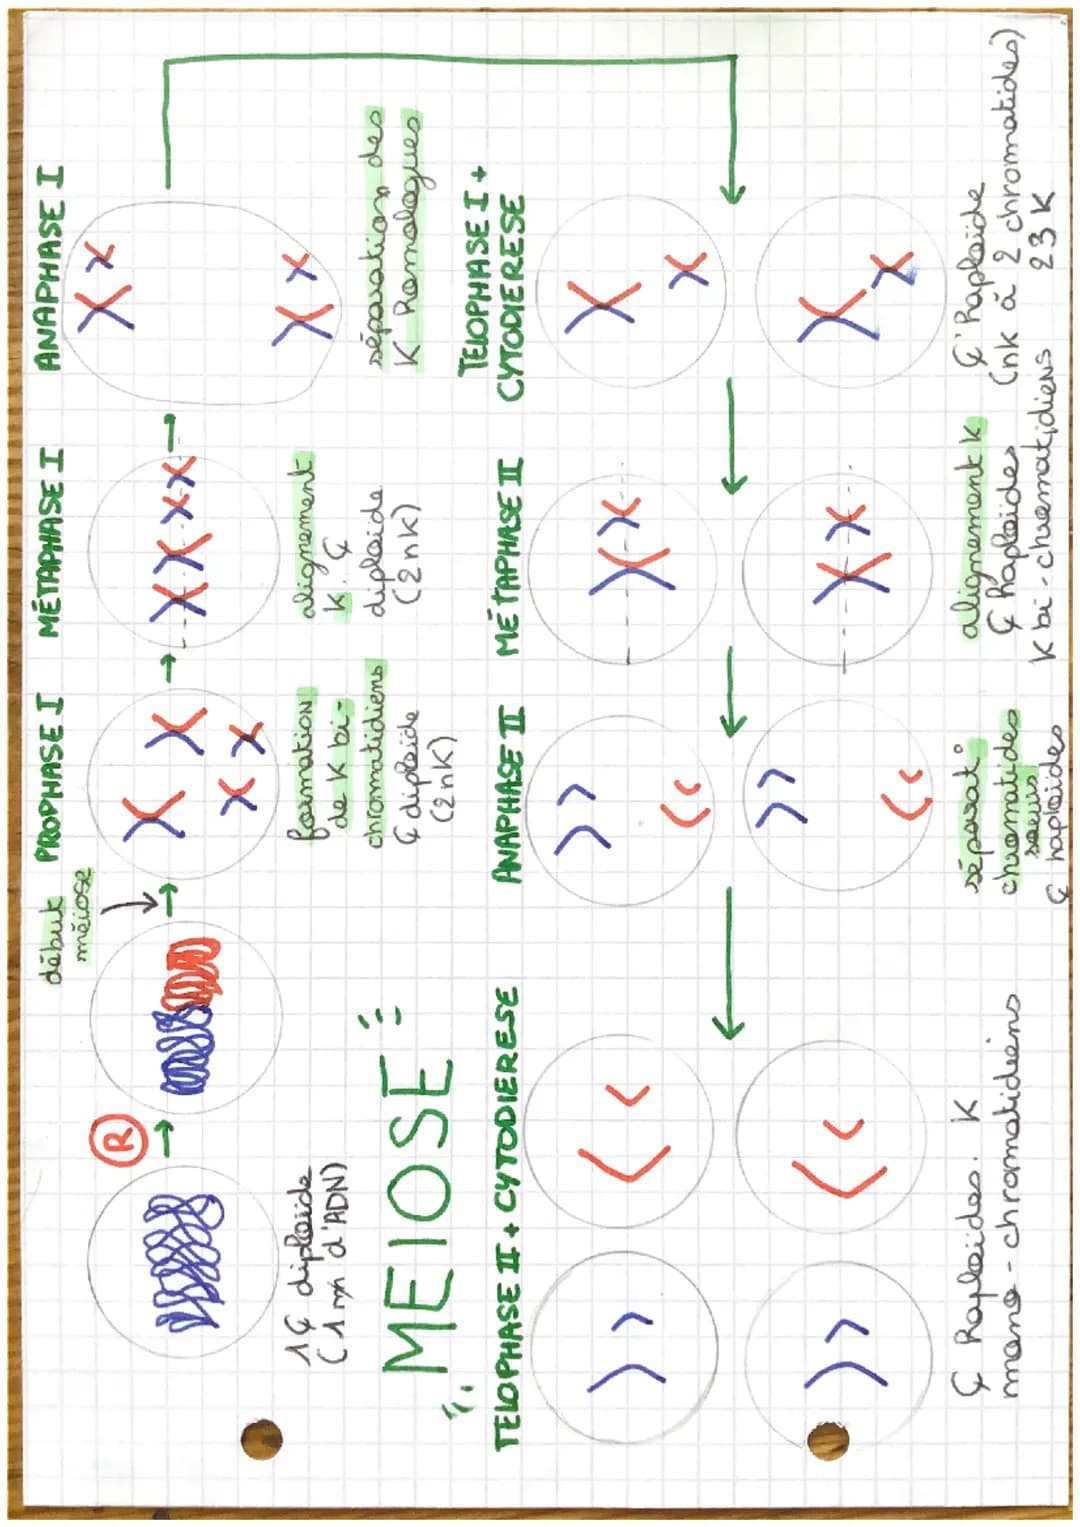 début
méiose
PROPHASE I
MÉTAPHASE I
ANAPHASE I
R
1 ₵ diploïde
d'ADN)
formation
de K bi-
chromatidiens
₵ diploïde
(2nK)
alignement
K. ₵
diploïde
(2nK)
séparation des
K homologues
MEIOSE
TELOPHASE II + CYTODIERESE
ANAPHASE II
MÉTAPHASE II
TELOPHASE I +
CYTODIERESE
₵ haploïdes. K
mono-chromatidiens
séparat°
chromatides
soeurs
₵ haploïdes
alignement K
₵ haploïdes
K bi-chromatidiens
₵ haploïde
(nK à 2 chromatides)
23 K